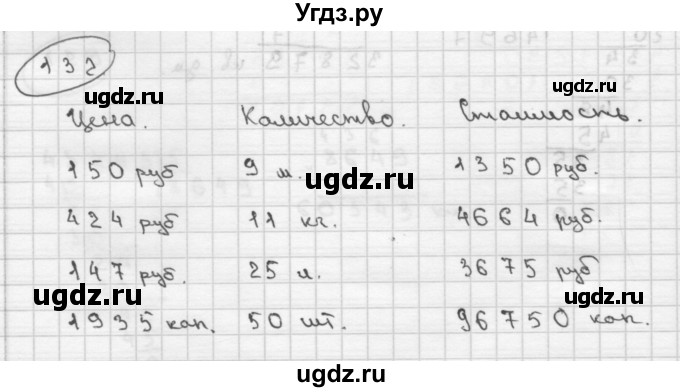 Угдз.ру
132
Цена. Количество. Стоимость.
150 руб 9 м. 1350 руб.
424 руб 11 кг. 4664 руб.
147 руб. 25 л. 3675 руб
1935 коп. 50 шт. 96750 коп.
ugdz.ru
ugdz.ru
ugdz.ru
ugdz.ru
ugdz.ru
ugdz.ru
ugdz.ru
ugdz.ru
ugdz.ru